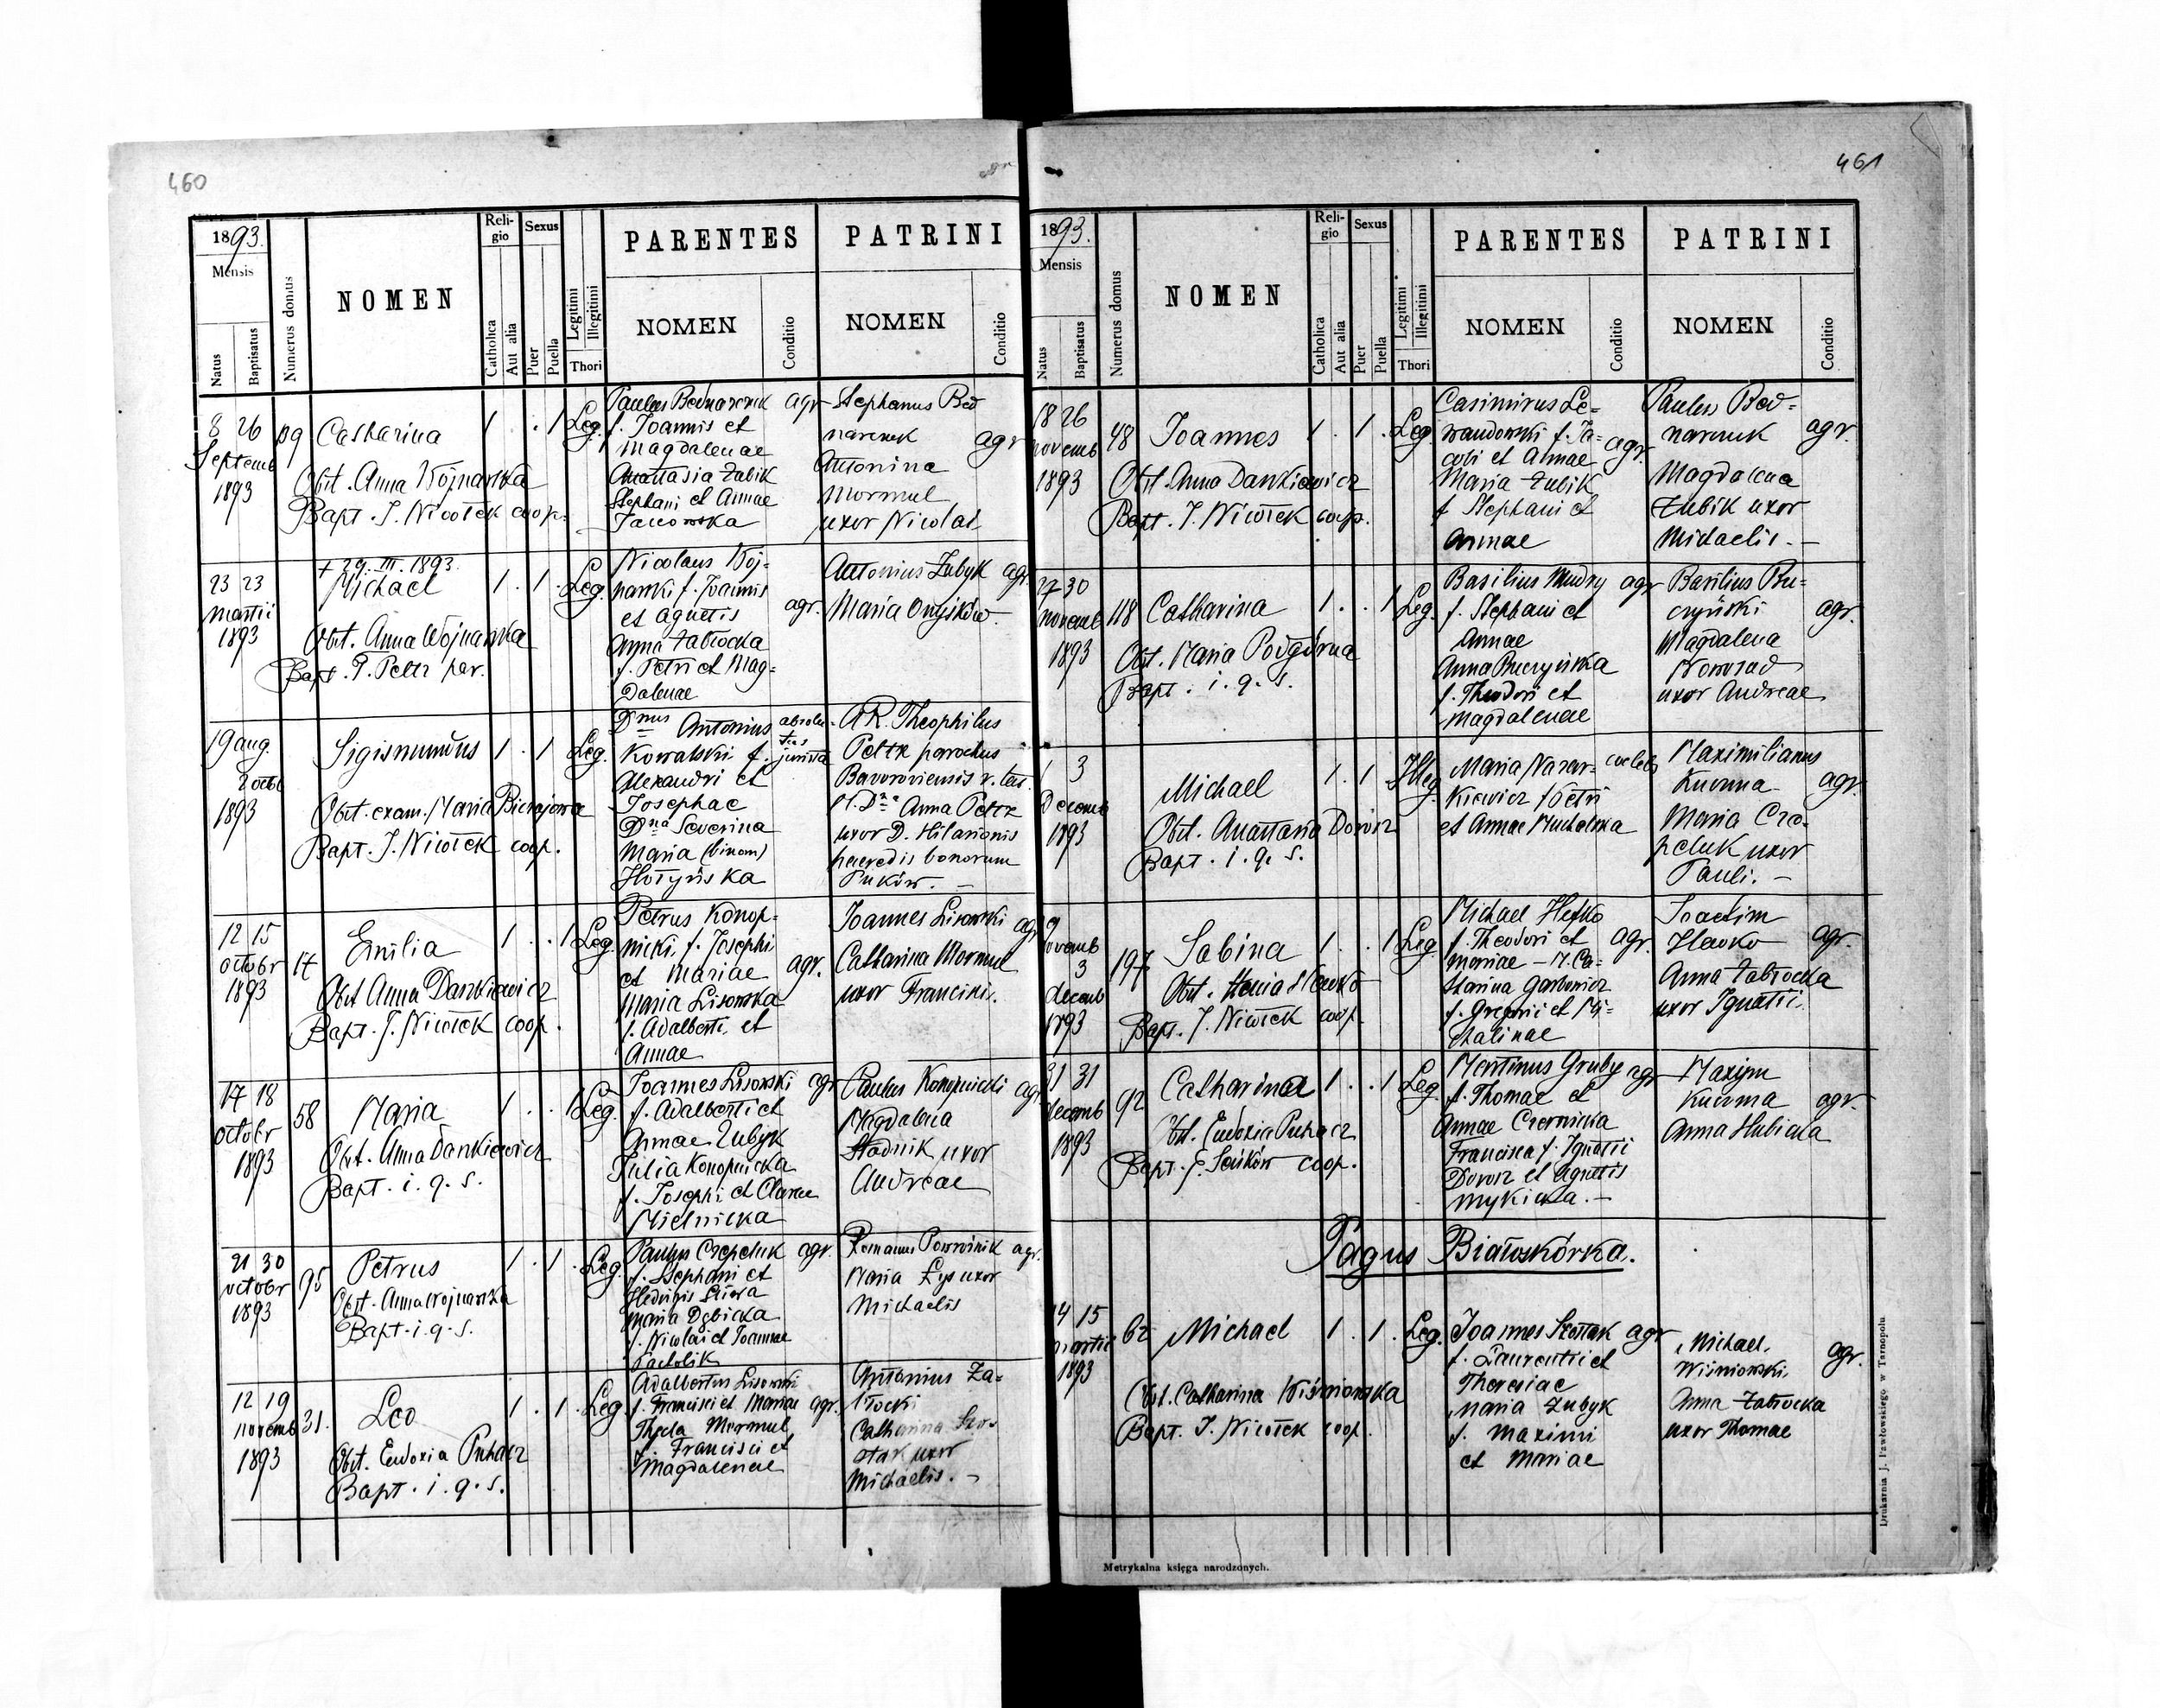 460
1893.
Mensis
Natus
Baptisatus
Numerus domus
NOMEN
Religio
Catholica
Aut alia
Sexus
Puer
Puella
Legitimi
Illegitimi
Thori
PARENTES
NOMEN
Conditio
PATRINI
NOMEN
Conditio
8 26
Septemb
1893
Catharina
1 . . 1 Leg.
Obst. Anna Wojnarska
Bapt. J. Niwiek coop.
Paulus Bednarczuk agr
f. Joannis et
Magdalenae
Anastasia Żubik
Stephani et Annae
Stephanus Bed
narczuk agr
Antonina
Mormul
uxor Nicolai
23 23
Martii
1893
+ 29. III. 1893.
Michael
1 . 1 . Leg.
Obst. Anna Wojnarska
Bapt. T. Peltz par.
Nicolaus Woj-
narski f. Joannis
et Agnetis agr.
Anna Zabłocka
f. Petri et Mag-
dalenae
Antonius Zubyk agr.
Maria
19 aug.
2 octob
1893
Sigismundus
1 . 1 Leg.
Obst. exam. Maria
Bapt. J. Niwiek coop.
Dnus Antonius absolu-
tus
Kowalski f. jurista
Alexandri et
Josephae
Dna Severina
Maria (binom)
Hołyńska
AR. Theophilus
Peltz parochus
Anna Peltz
uxor D. Hilarionis
haeredis bonorum
Puków. –
12 15
octobr 17
1893
Emilia
1 . . 1 Leg.
Obst Anna Dankiewicz
Bapt. J. Niwiek coop.
Petrus Konop-
nicki f. Josephi
et Mariae agr.
Maria Lisowska
f. Adalberti et
Annae
Joannes Lisowski agr
Catharina Mormul
uxor Francisci.
17 18
octobr 58
1893
Maria
1 . . 1 Leg.
Obst. Anna Dankiewicz
Bapt. i. q. s.
Joannes Lisowski agr
f. Adalberti et
Annae Zubyk
Julia Konopnicka
f. Josephi et Clarae
Mielnicka
Paulus Konopnicki agr
Magdalena
Stadnik uxor
Andreae
21 30
octobr 95
1893
Petrus
1 . 1 . Leg.
Obst. Anna Wojnarska
Bapt. i. q. s.
Paulus Czepeluk agr.
f. Stephani et
Hedvigis
Maria Dębicka
f. Nicolai et Joannae
Romanus Powroźnik agr.
Maria Łys uxor
Michaelis
12 19
novemb 31.
1893
Leo
1 . 1 . Leg.
Obst. Eudoxia Puhacz
Bapt. i. q. s.
Adalbertus Lisowski
f. Francisci et Mariae agr.
Thecla Mormul
f. Francisci et
Magdalenae
Antonius Za-
błocki
Catharina Szos-
tak uxor
Michaelis. –
461
1893.
Mensis
Natus
Baptisatus
Numerus domus
NOMEN
Religio
Catholica
Aut alia
Sexus
Puer
Puella
Legitimi
Illegitimi
Thori
PARENTES
NOMEN
Conditio
PATRINI
NOMEN
Conditio
18 26
novemb 48
1893
Joannes
1 . 1 . Leg.
Obst. Anna Dankiewicz
Bapt. J. Niwiek coop.
Casimirus Le-
wandowski f. Ja-
cobi et Annae agr.
Maria Żubik
f Stephani et
Annae
Paulus Bed-
narczuk agr.
Magdalena
Żubik uxor
Michaelis. –
27 30
novemb 118
1893
Catharina
1 . . 1 Leg.
Obst. Maria Podgórna
Bapt. i. q. s.
Basilius Mudry agr
f. Stephani et
Annae
Anna Buczyńska
f. Theodori et
Magdalenae
Basilius Bu-
czyński agr.
Magdalena
Noworad
uxor Andreae
1 3
Decemb
1893
Michael
1 . 1 . Illeg.
Obst. Anastasia Dorosz
Bapt. i. q. s.
Maria Nazar- coelebs
kiewicz f Petri
et Annae
Maximilianus
Kuzma agr.
Maria Cze-
peluk uxor
Pauli. –
9
novemb
3 197
decemb
1893
Sabina
1 . . 1 Leg.
Obst. Henia
Bapt. J. Niwiek coop.
Michael
f. Theodori et agr.
Mariae –
tharina
f. Gregorii et Mi-
chalinae
Joachim
Hewko agr.
Anna Zabłocka
uxor Ignatii.
31 31
decemb 92
1893
Catharina
1 . . 1 Leg.
Obst. Eudoxia Puhacz
Bapt. J. Seńków coop.
Martinus Gruby agr
f. Thomae et
Annae Czernicka
Francisca f. Ignatii
Dorosz et Agnetis
Mykicka. –
Maxym
Kuzma agr.
Anna Hubicka
Pagus Białoskórka.
14 15
martii 62
1893
Michael
1 . 1 . Leg.
Obst. Catharina Wiśniowska
Bapt. J. Niwiek coop.
Joannes Szostak agr
f. Laurentii et
Theresiae
Maria Zubyk
f. Maximi
et Mariae
Michael
Wiśniowski agr.
Anna Zabłocka
uxor Thomae
Metrykalna księga narodzonych.
Drukarnia J. Pawłowskiego w Tarnopolu.